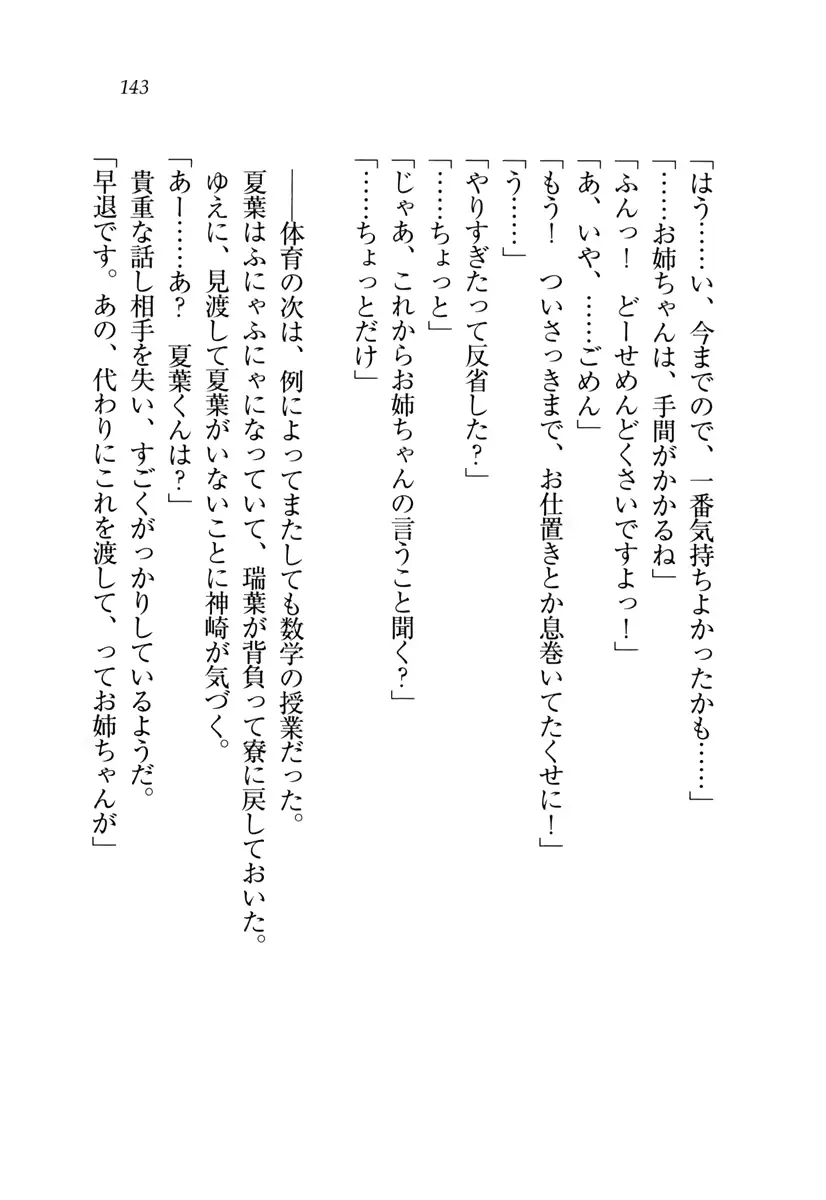 143
「はう……い、今までので、一番気持ちよかったかも……」
「……お姉ちゃんは、手間がかかるね」
「ふんっ！　どーせめんどくさいですよっ！」
「あ、いや、……ごめん」
「もう！　ついさっきまで、お仕置きとか息巻いてたくせに！」
「う……」
「やりすぎたって反省した？」
「……ちょっと」
「じゃあ、これからお姉ちゃんの言うこと聞く？」
「……ちょっとだけ」
――体育の次は、例によってまたしても数学の授業だった。
夏葉はふにゃふにゃになっていて、瑞葉が背負って寮に戻しておいた。
ゆえに、見渡して夏葉がいないことに神崎が気づく。
「あー……あ？　夏葉くんは？」
貴重な話し相手を失い、すごくがっかりしているようだ。
「早退です。あの、代わりにこれを渡して、ってお姉ちゃんが」